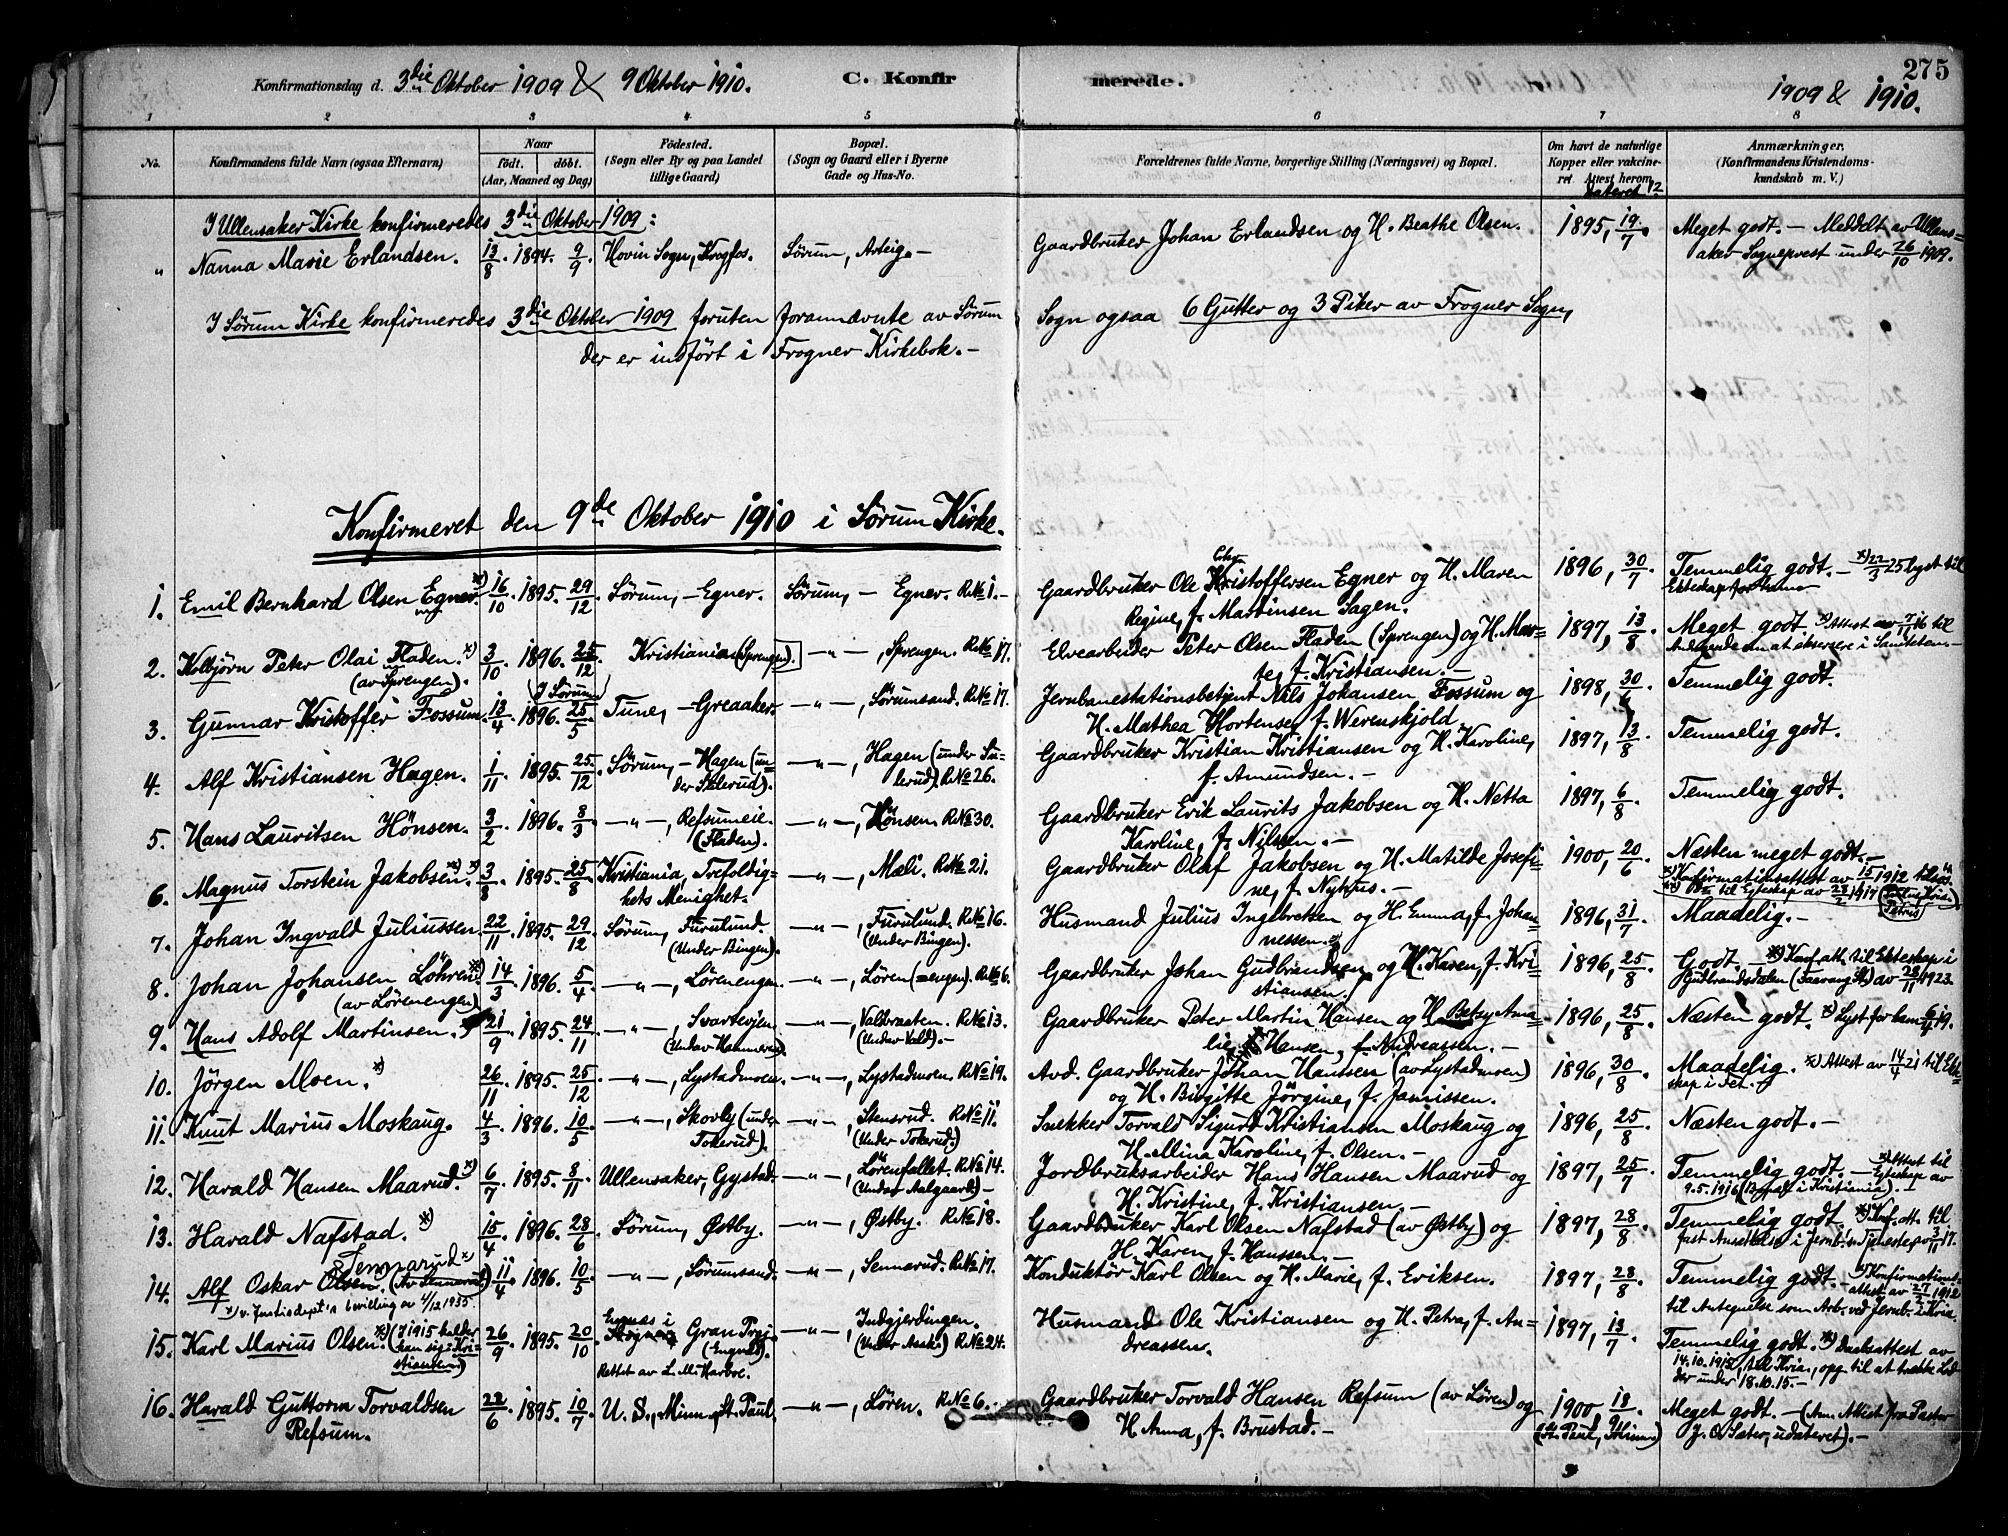 275
Konfirmationsdag d. 3die Oktober 1909 & 9 Oktober 1910. C. Konfirmerede. 1909 & 1910.
1 2 3 4 5 6 7 8
No. Konfirmandens fulde Navn (ogsaa Efternavn) Naar født. døbt. (Aar, Maaned og Dag) Fødested. (Sogn eller By og paa Landet tillige Gaard) Bopæl. (Sogn og Gaard eller i Byerne Gade og Hus-No. Forældrenes fulde Navne, borgerlige Stilling (Næringsvei) og Bopæl. Om havt de naturlige Kopper eller vakcineret. Attest herom dateret Anmærkninger. (Konfirmandens Kristendomskundskab m. V.)
I Ullensaker Kirke konfirmeredes 3die Oktober 1909:
" Nanna Marie Erlandsen. 13/8. 1894. 9/9. Hovin Sogn, Krogfos. Sørum, Arteig.– Gaardbruker Johan Erlandsen og H. Beathe Olsen. 1895, 19/7. Meget godt. – Meddelt av Ullens-
aker Sogneprest under 26/10 1909.
I Sørum Kirke konfirmeredes 3die Oktober 1909 foruten forannævnte av Sørum Sogn ogsaa 6 Gutter og 3 Piker av Frogner Sogn,
der er indført i Frogner Kirkebok.–
Konfirmeret den 9de Oktober 1910 i Sørum Kirke.
1. Emil Bernhard Olsen Egner. x) 16/10. 1895. 29/12. Sørum, – Egner. Sørum, – Egner. R.No 1.– Gaardbruker Ole Kristoffersen Egner og H. Maren 1896, 30/7. Temmelig godt. – x) 22/3 25 lyst til
Regine, f. Martinsen Sagen. Ekteskap for ham
2. Kolbjørn Peter Olai Fladen. x) 3/10 1896. 25/12 Kristiania (Sprengen). –"–, Sprengen. R.No 17. Elvearbeider Peter Olsen Fladen (Sprengen) og H. Mar- 1897, 13/8. Meget godt. x) Attest av 7/11 16 til
(av Sprengen). (I Sørum) te, f. Kristiansen.–
3. Gunnar Kristoffer Fossum. 13/4 1896. 25/5. Tune, – Greaaker. –"–, Sørumsand. R.No 17. Jernbanestationsbetjent Nils Johansen Fossum og 1898, 30/6 Temmelig godt.
H. Mathea Mortensen, f. Werenskjold.
4. Alf Kristiansen Hagen. 1/11. 1895. 25/12 Sørum, – Hagen (un- –"–, Hagen (under Su- Gaardbruker Kristian Kristiansen og H. Karoline, 1897, 13/8. Temmelig godt.
der Sulerud). lerud). R.No 26. f. Amundsen.–
5. Hans Lauritsen Hønsen. 3/2. 1896. 8/3. –"–, Refsumeie. –"–, Hønsen. R.No 30. Gaardbruker Erik Laurits Jakobsen og H. Netta 1897, 6/8 Temmelig godt.
(Fladen). Karoline, f. Nilsen.–
6. Magnus Torstein Jakobsen. x) x) 3/8. 1895. 25/8. Kristiania, Trefoldig- –"–, Mæli. R.No 21. Gaardbruker Olaf Jakobsen og H. Matilde Josefi- 1900, 20/6 Næsten meget godt.–
hets Menighet. ne, f. Nyhus.– x) Konfirmationsattest av 15/11 1912
7. Johan Ingvald Juliussen 22/11. 1895. 29/12. Sørum, Furulund. –"–, Furulund. R.No 16. Husmand Julius Ingebretsen og H. Emma, f. Johan- 1896, 31/7 Maadelig.–
(Under Bingen). (Under Bingen). nessen.
8. Johan Johansen Løhren. x) 14/3. 1896. 5/4. –"–, Lørenengen. –"–, Løren (–engen). R.No 6. Gaardbruker Johan Gudbrandsen og H. Karen, f. Kri- 1896, 25/8. Godt. – x) Konf.att. til Ekteskap i
(av Lørenengen) stiansen. Gudbrandsdalen av 28/11 1923.
9. Hans Adolf Martinsen. x) 21/9 1895. 24/11 –"–, Svartevjen. –"–, Valbraaten. R.No 13. Gaardbruker Peter Martin Hansen og H. Betsy Ama- 1896, 25/8. Næsten godt. x) Lyst for ham 6/4 19.
(Under Hammeren). (Under Vald).– lie Hansen, f. Andreassen.–
10. Jørgen Moen. x) 26/11 1895. 25/12 –"–, Lystadmoen. –"–, Lystadmoen. R.No 19. Avd. Gaardbruker Johan Hansen (av Lystadmoen) 1896, 30/8 Maadelig. x) Attest av 14/4 21 til Ekte-
og H. Birgitte Jørgine, f. Jamissen. skap i
11. Knut Marius Moskaug. 4/3. 1896. 10/5 –"–, Skovby (under –"–, Stensrud. R.No 11. Snekker Torvald Sigurd Kristiansen Moskaug og 1896, 25/8. Næsten godt.–
Tokerud). (Under Tokerud.) H. Mina Karoline, f. Olsen.–
12. Harald Hansen Maarud. x) 6/7 1895. 8/11 Ullensaker, Gystad. –"–, Lørenfallet. R.No 14. Jordbruksarbeider Hans Hansen Maarud og 1897, 25/7. Temmelig godt. – x) Attest til
(Under Aalgaard)– H. Kristine, f. Kristiansen.– Egteskap av 9.5.1916 (Bopæl i Kristiania).
13. Harald Nafstad. x) 15/4. 1896. 28/6. Sørum, Østby. –"–, Østby. R.No 18. Gaardbruker Karl Olsen Nafstad (av Østby) og 1897, 28/8. Temmelig godt. x) Konf. att. til
H. Karen, f. Hanssen.– fast Ansættelse i Jernb.s Tjeneste av 3/11 17.
14. Alf Oskar Olsen Sennerud x) 11/4. 1896. 10/5. –"–, Sørumsand. –"–, Sennerud. R.No 17. Konduktør Karl Olsen og H. Marie, f. Eriksen. 1897, 28/8. Temmelig godt.– x) Konfirmations-
x) v. Justisdept's bevilling av 4/12 1935. attest av 27/2 1912 til Antegnelse som Arb. ved Jernb. i Kria.
15. Karl Marius Olsen. x) (I 1915 kalder 26/9. 1895. 20/10 Egnes i Gran Prgj. –"–, Indgjerdingen. Husmand Ole Kristiansen og H. Petra, f. An- 1897, 13/7. Temmelig godt. x) Daabsattest av
han sig: Kri- stiansen) (Engnes). (Under Asak.) R.No 24. dreassen. 14.10.1915 til Kria, opg. til at trække Lod
Rettet av L. M. Harboe. der under 18.10.15.–
16. Harald Guttorm Torvaldsen 22/6. 1895. 10/7. U. S., Minn., St. Paul. –"–, Løren. R.No 6. Gaardbruker Torvald Hansen Refsum (av Løren) og 1900 18/9. Meget godt. – (Ann. Attest fra Pastor
Refsum. H. Anna, f. Brustad.– (St. Paul, Minn.) udateret).–